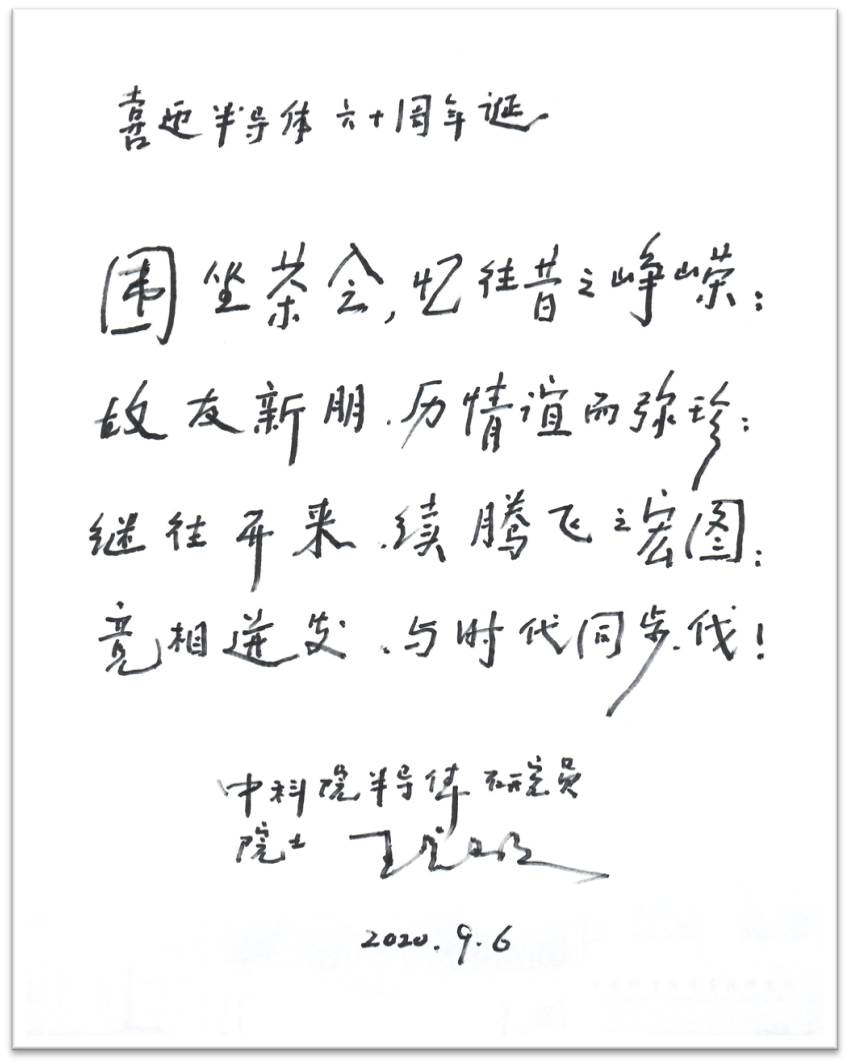 喜迎半导体六十周年诞
围坐茶会,忆往昔之峥嵘;
故友新朋、历情谊而弥珍;
继往开来、续腾飞之宏图;
竞相迸发、与时代同步伐!
中科院半导体研究员
院士 王启明
2020.9.6